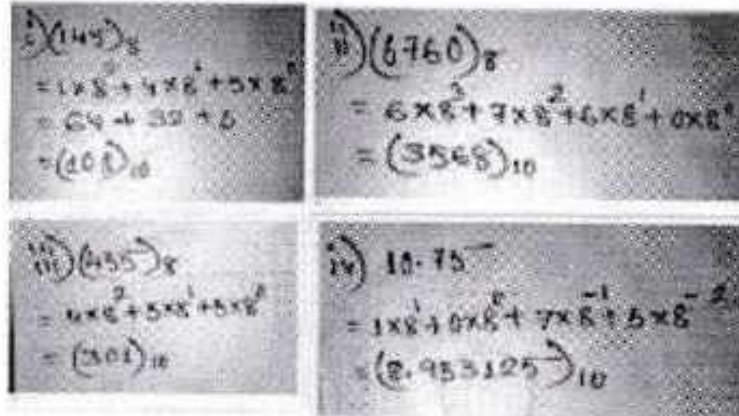 i) (145)₈
= 1×8² + 4×8¹ + 5×8⁰
= 64 + 32 + 5
= (101)₁₀
ii) (6760)₈
= 6×8³ + 7×8² + 6×8¹ + 0×8⁰
= (3568)₁₀
iii) (455)₈
= 4×8² + 5×8¹ + 5×8⁰
= (301)₁₀
iv) 10.75
= 1×8¹ + 0×8⁰ + 7×8⁻¹ + 5×8⁻²
= (8.953125)₁₀